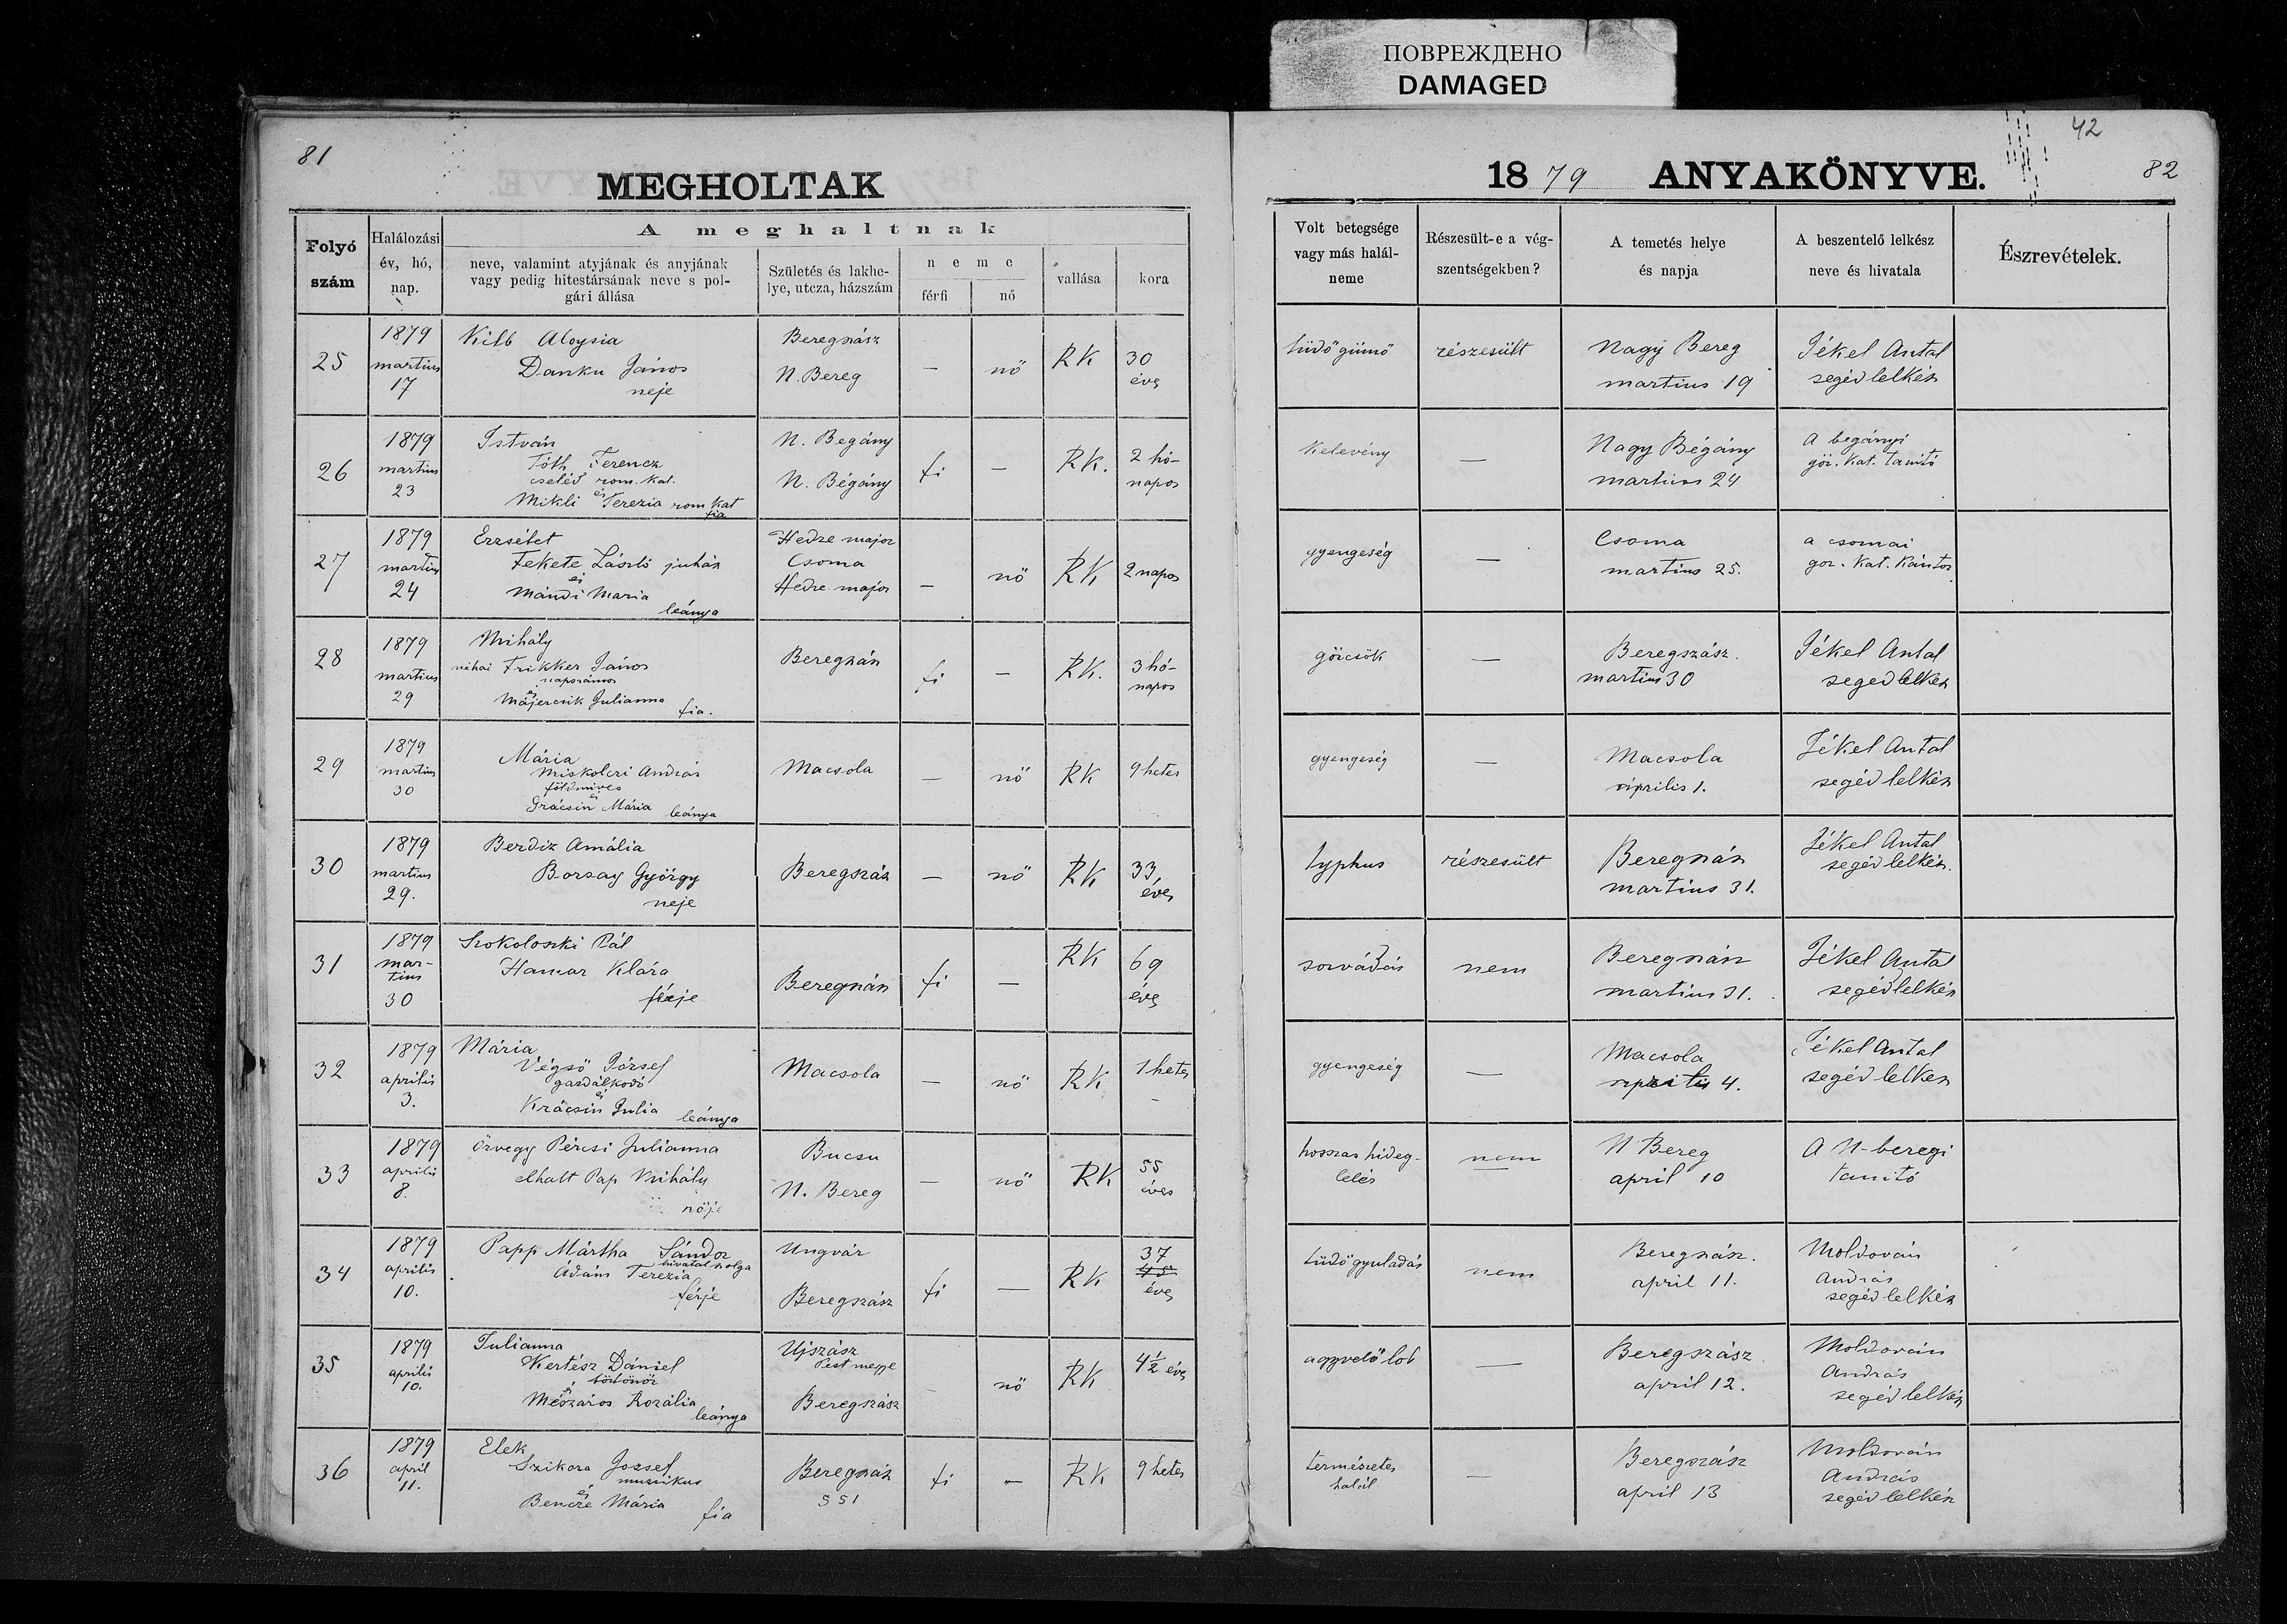 ПОВРЕЖДЕНО
DAMAGED
81
MEGHOLTAK
Folyó szám
Halálozási év, hó, nap.
A meghaltnak
neve, valamint atyjának és anyjának vagy pedig hitestársának neve s polgári állása
Születés és lakhelye, utcza, házszám
neme
férfi
nő
vallása
kora
25
1879 martius 17
Kilb Aloysia
Danku János
neje
Beregszász
N. Bereg
—
nő
RK
30 éves
26
1879 martius 23
István
Tóth Ferencz
cseléd rom. kat.
és
Mikli Terezia rom kat
fia
N. Begány
N. Bégány
fi
—
RK.
2 hó-
napos
27
1879 martius 24
Erzsébet
Fekete László juhász
és
Mándi Maria
leánya
Hedre major
Csoma
Hedre major
—
nő
RK
2 napos
28
1879 martius 29
Mihály
néhai Trikker János
napszámos
és
Májercsik Julianna
fia.
Beregszász
fi
—
RK.
3 hó-
napos
29
1879 martius 30
Mária
Miskolczi András
földmives
és
Grácsin Mária
leánya
Macsola
—
nő
RK
9 hetes
30
1879 martius 29.
Berdiz Amália
Borsay György
neje
Beregszász
—
nő
RK
33 éves
31
1879 mar-
tius 30
Szokoloszki Pál
Hamar Klára
férje
Beregszász
fi
—
RK
69 éves
32
1879 aprilis 3.
Mária
Végső József
gazdálkodó
és
Krácsin Julia
leánya
Macsola
—
nő
RK
1 hetes
33
1879 aprilis 8.
özvegy Pércsi Julianna
elhalt Pap Mihály
nője
Bucsu
N. Bereg
—
nő
RK
55 éves
34
1879 aprilis 10.
Papp Mártha Sándor
hivatalszolga
Ádám Terezia
férje
Ungvár
Beregszász
fi
—
RK
37
45
éves
35
1879 aprilis 10.
Julianna
Kertész Dániel
börtönőr
és
Mészáros Rozália
leánya
Ujszász
Pest megye
Beregszász
nő
RK
4½ éves
36
1879 april 11.
Elek
Szikora József
muzsikus
és
Bencze Mária
fia
Beregszász
551
fi
—
RK
9 hetes
42
82
1879 ANYAKÖNYVE.
Volt betegsége vagy más halálneme
Részesült-e a végszentségekben?
A temetés helye és napja
A beszentelő lelkész neve és hivatala
Észrevételek.
tüdőgümő
részesült
Nagy Bereg
martius 19
Jékel Antal
segédlelkész
Kelevény
—
Nagy Bégány
martius 24
A begányi
gör. Kat. tanitó
gyengeség
—
Csoma
martius 25.
a csomai
gör. Kat. Kántor
görcsök
—
Beregszász.
martius 30
Jékel Antal
segedlelkész
gyengeség
—
Macsola
április 1.
Jékel Antal
segédlelkész
typhus
részesült
Beregszász
martius 31.
Jékel Antal
segédlelkész.
sorvadás
nem
Beregszász
martius 31.
Jékel Antal
segédlelkész
gyengeség
—
Macsola
aprilis 4.
Jékel Antal
segédlelkész
hosszas hideg-
lelés
nem
N Bereg
april 10
A N-beregi
tanitó
tüdőgyuladás
nem
Beregszász.
april 11.
Moldován
András
segédlelkész
agyvelőlob
—
Beregszász
april 12.
Moldován
András
segédlelkész
természetes
halál
—
Beregszász
april 13
Moldován
András
segédlelkész